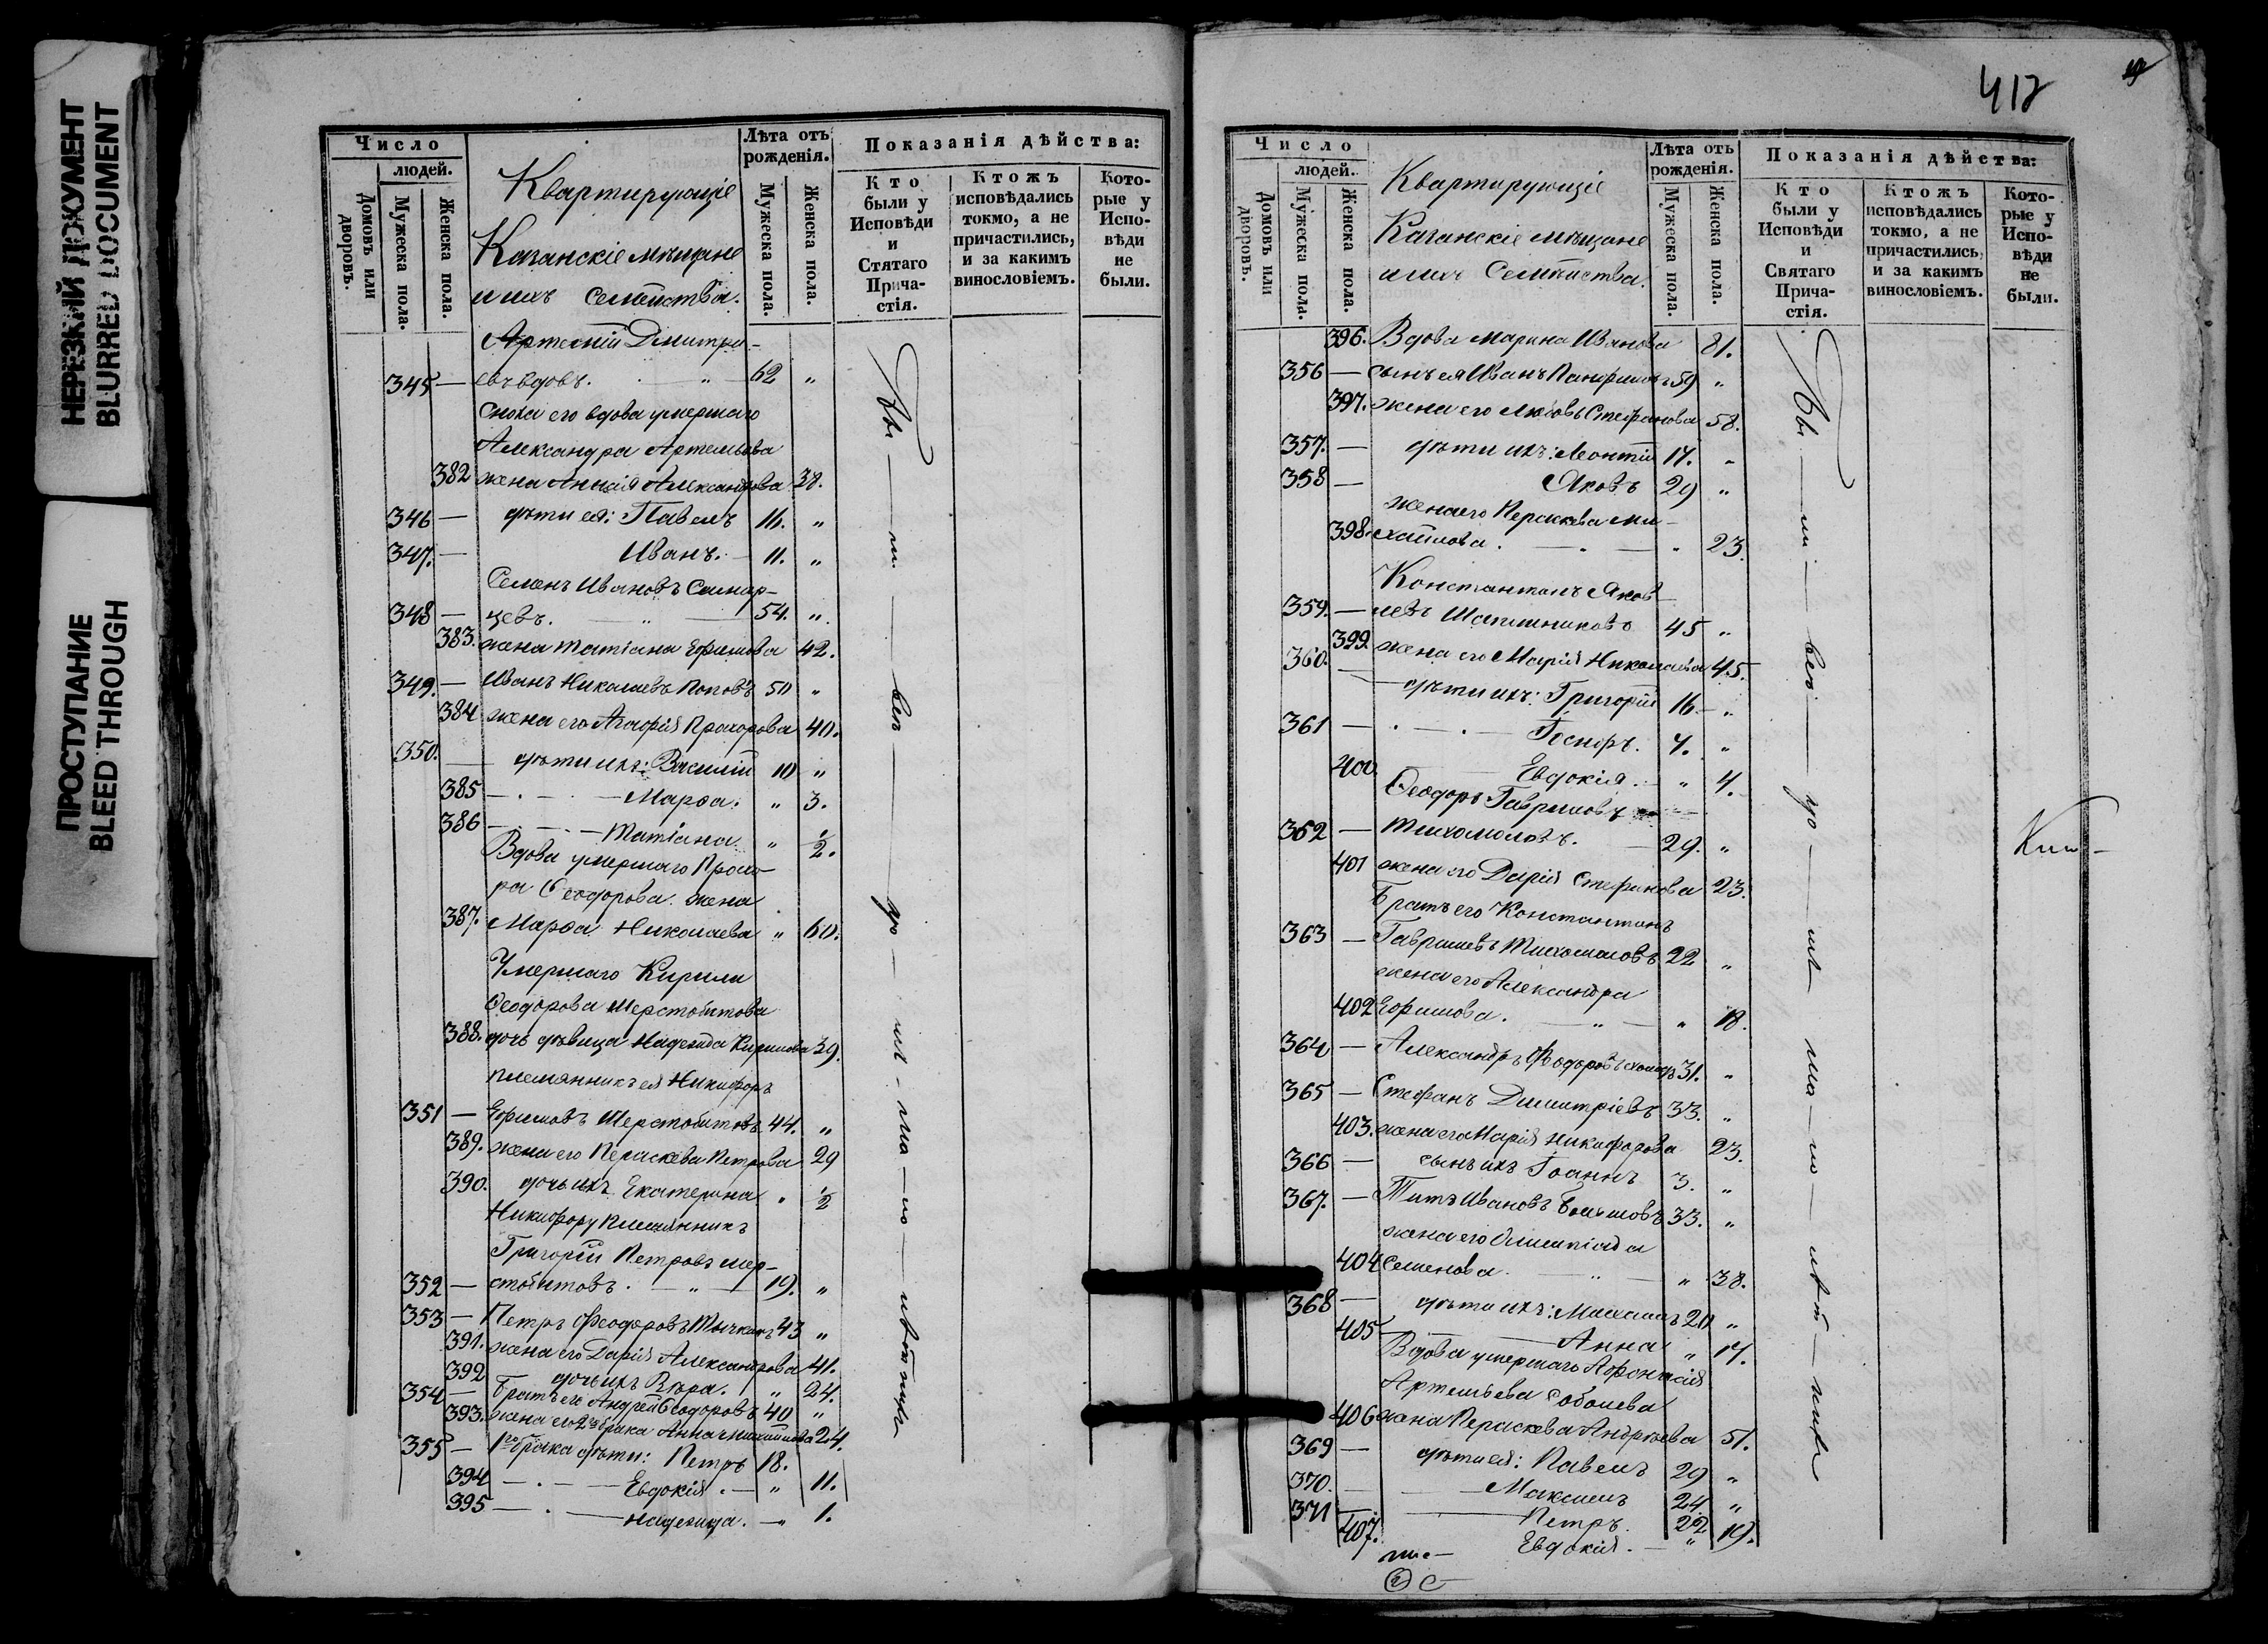 НЕРЕЗКИЙ ДОКУМЕНТ
BLURRED DOCUMENT
ПРОСТУПАНИЕ
BLEED THROUGH
Число
людей.
Домовъ или дворовъ.
Мужеска пола.
Женска пола.
Квартирующіе
Казанскіе мѣщане
и ихъ семейства.
Лѣта отъ рожденія.
Мужеска пола.
Женска пола.
Показанія дѣйства:
Кто были у Исповѣди и Стятаго Прича-стія.
Ктожъ исповѣдались токмо, а не причастились, и за какимъ винословіемъ.
Кото-рые у Испо-вѣди не были.
Артемій Дмитри-
345 — евъ вдовъ. — „ — 62 „
Сноха его вдова умершаго
Александра Артемьева
382 жена Александрова 38.
346 — дѣти ея: Павелъ 16. „
347. — Иванъ. — 11. „
Семенъ Ивановъ Самар-
348 — цевъ. — „ — 54. „
383. жена Татіана Ефимова 42.
349. — Иванъ Николаевъ Поповъ 50 „
384 жена его Агафія Прохорова 40.
350. — дѣти ихъ: Василій 10 „
385 — . — . — Марѳа. „ 3.
386 — . — . — Татіана. „ 1/2.
Вдова умершаго Прохо-
ра Ѳеодорова жена
387. Марѳа Николаева „ 60.
Умершаго Кирила
Ѳеодорова Шерстобитова
388. дочь дѣвица Надежда Кирилова 39.
племянникъ ея Никифоръ
351 — Ефимовъ Шерстобитовъ 44. „
389. жена его Параскева Петрова 29
390. дочь ихъ Екатерина „ 1/2
Никифору племянникъ
Григорій Петровъ Шер-
352 — стобитовъ. — „ — 19. „
353 — Петръ Ѳеодоровъ Тычкинъ 43 „
391. жена его Дарія Александрова 41.
392 дочь ихъ Вѣра. „ 24.
354 — Братъ его Андрей Ѳеодоровъ 40 „
393. жена его 2го брака Анна Михайлова 24.
355 — 1го брака дѣти: Петръ 18.
394 — . — Евдокія. — „ 11.
395 — . — Надежда. — „ 1.
412
Число
людей.
Домовъ или дворовъ.
Мужеска пола.
Женска пола.
Квартирующіе
Казанскіе мѣщане
и ихъ Семейства.
Лѣта отъ рожденія.
Мужеска пола.
Женска пола.
Показанія дѣйства:
Кто были у Исповѣди и Святаго Прича-стія.
Ктожъ исповѣдались токмо, а не причастились, и за какимъ винословіемъ.
Кото-рые у Испо-вѣди не были.
396. Вдова Марина Иванова 81.
356 — сынъ ея Иванъ Панфиловъ 59 „
397. жена его Любовь Стефанова 58.
357. — дѣти ихъ: Леонтій 17. „
358 — Яковъ 29 „
жена его Параскева Ми-
398. хайлова. — . — „ 23.
Константинъ Яков-
359. — левъ Шапошниковъ 45 „
399. жена его Марія Николаева 45.
360. — дѣти ихъ: Григорій 16 — „
361 — . — . — 7. „
400. Евдокія. — „ 4.
Ѳеодоръ Гавриловъ
362 — Тихомоловъ. — 29. „
401 жена его Дарія Стефанова 23.
Братъ его Константинъ
363 — Гавриловъ Тихомоловъ 22 „
жена его Александра
402 Ефимова. — „ — „ 18.
364 — Александръ Ѳеодоровъ 31. „
365 — Стефанъ Димитріевъ 33. „
403. жена его Марія Никифорова 23.
366 — сынъ ихъ Іоаннъ 3. „
367. — Титъ Ивановъ 33. „
жена его Олимпіада
404 Семенова. — „ — „ 38.
368 — дѣти ихъ: Михаилъ 20 „
405 — Анна „ 17.
Вдова умершаго Аѳонасія
Артемьева Соболева
406 жена Параскева Андреева 51.
369 — дѣти ея: Павелъ 29 „
370. — Максимъ 24 „
371 — Петръ. 22 „
407. Евдокія. — „ 19.